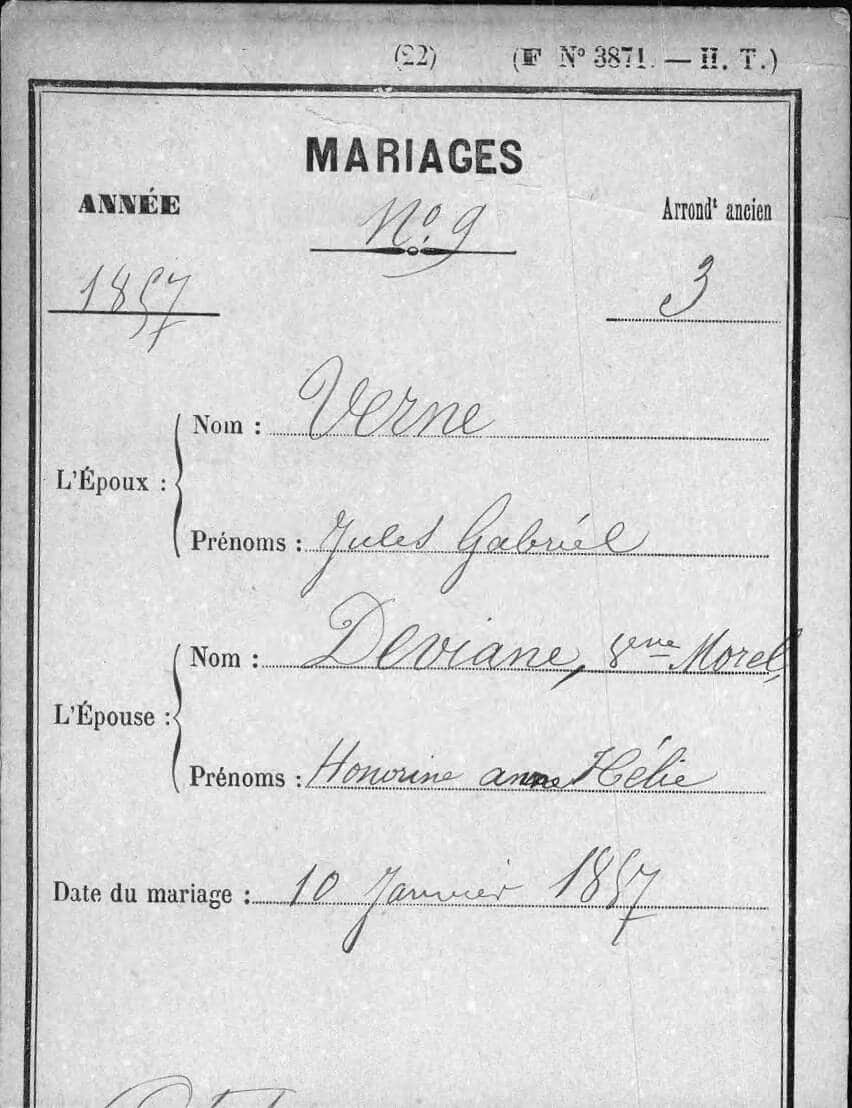 (22) (F N° 3871. — H. T.)
MARIAGES
ANNÉE N°. 9 Arrondt ancien
1857 3
L'Époux :
Nom : Verne
Prénoms : Jules Gabriel
L'Épouse :
Nom : Deviane, veuve Morel,
Prénoms : Honorine anne Hélie
Date du mariage : 10 Janvier 1857